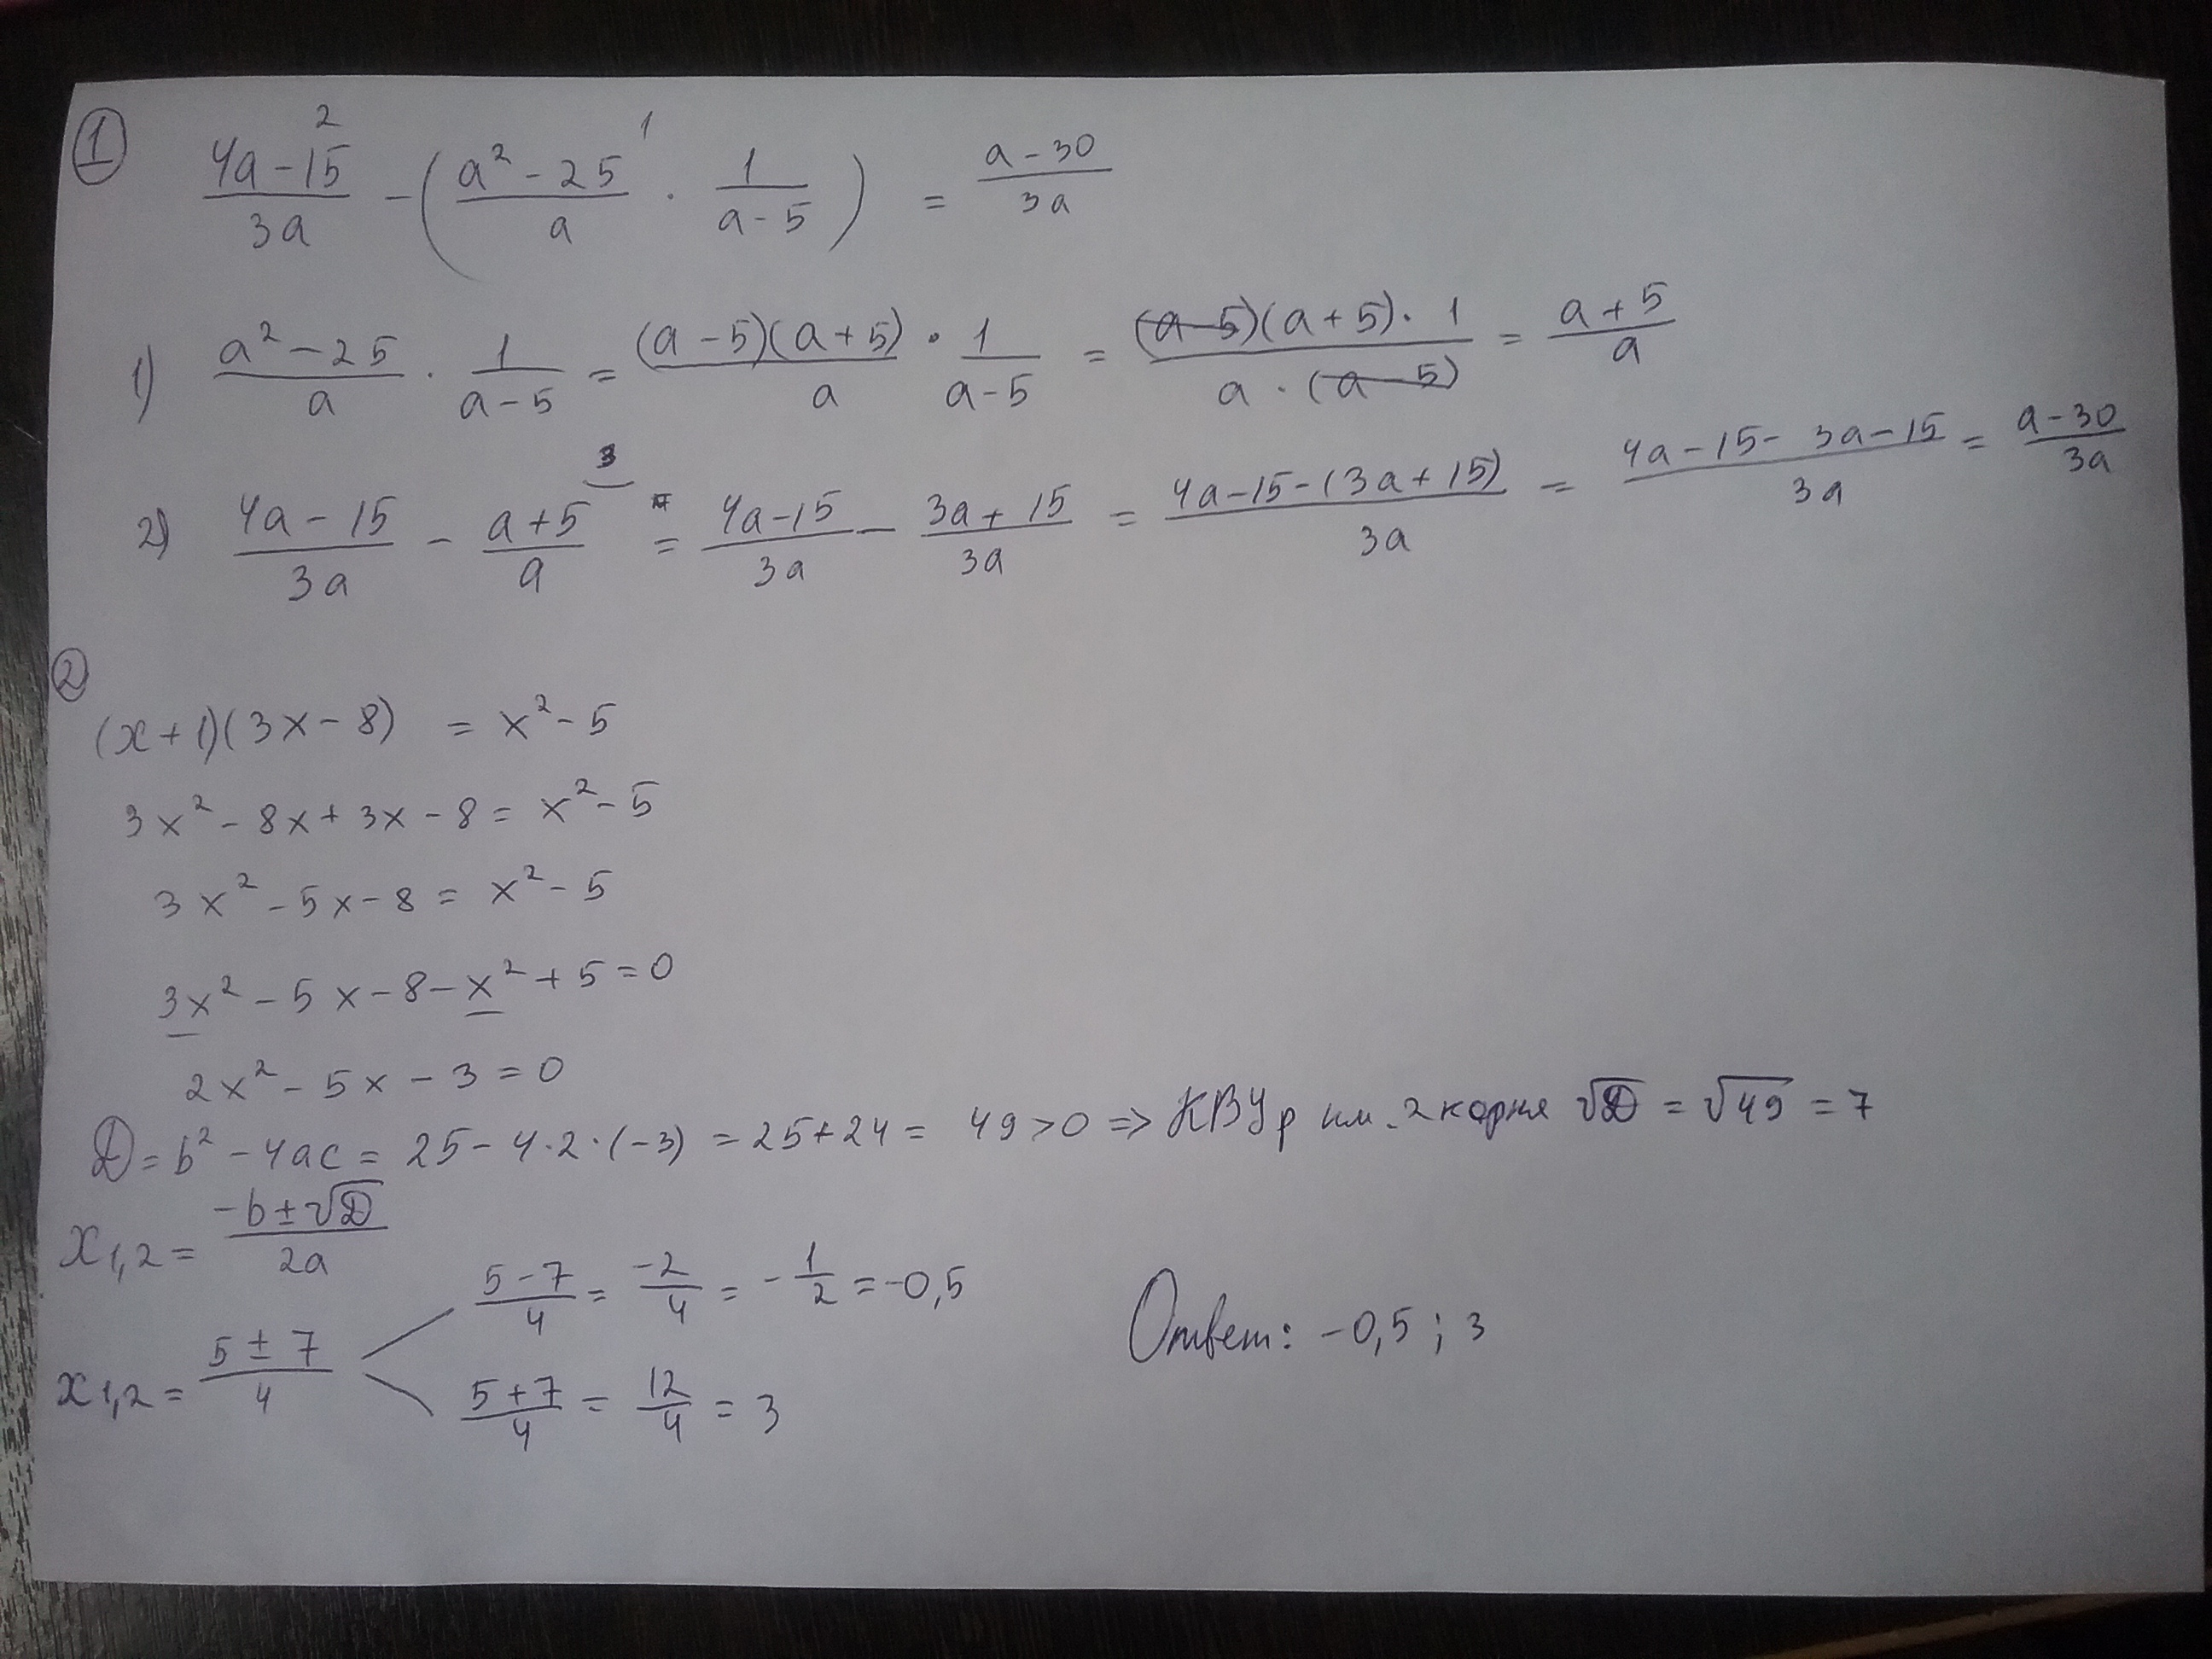 ① (4a-15)/(3a) - ((a²-25)/a · 1/(a-5)) = (a-30)/(3a)
1) (a²-25)/a · 1/(a-5) = (a-5)(a+5)/a · 1/(a-5) = ((a-5)(a+5)·1)/(a·(a-5)) = (a+5)/a
2) (4a-15)/(3a) - (a+5)/a = (4a-15)/(3a) - (3a+15)/(3a) = (4a-15-(3a+15))/(3a) = (4a-15-3a-15)/(3a) = (a-30)/(3a)
②
(x+1)(3x-8) = x²-5
3x²-8x+3x-8 = x²-5
3x²-5x-8 = x²-5
3x²-5x-8-x²+5=0
2x²-5x-3=0
D=b²-4ac = 25-4·2·(-3) = 25+24 = 49>0 ⇒ КВУр им. 2 корня √D = √49 = 7
x1,2 = (-b±√D)/(2a)
(5-7)/4 = -2/4 = -1/2 = -0,5
x1,2 = (5±7)/4
(5+7)/4 = 12/4 = 3
Ответ: -0,5; 3